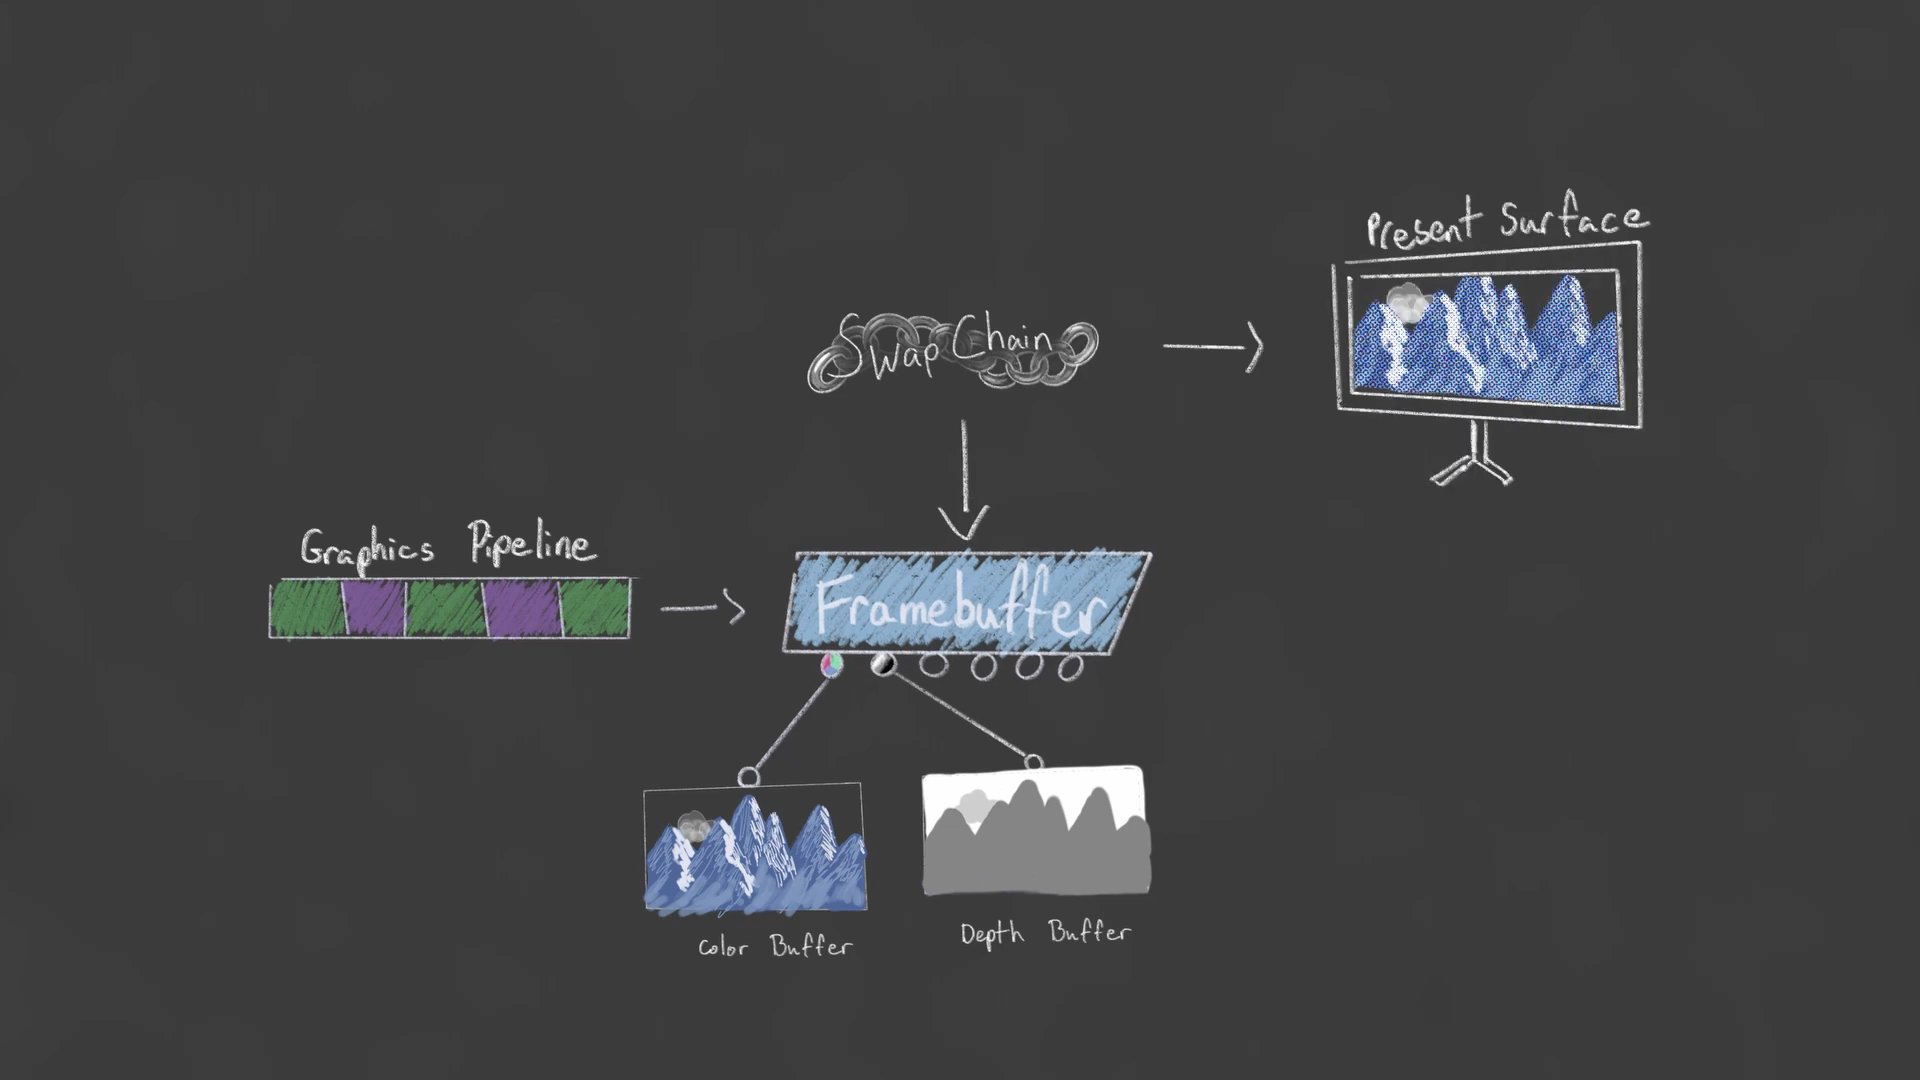 Present Surface
Swap Chain
Graphics Pipeline
Framebuffer
Color Buffer
Depth Buffer